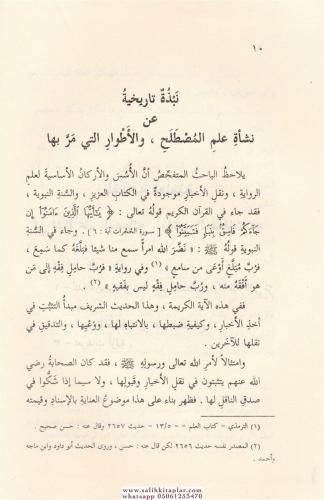 ١٠
نَبْذَةٌ تاريخيةٌ
عن
نشأةِ علمِ المُصْطَلَحِ ، والأَطْوارِ التي مَرَّ بها
يلاحظُ الباحثُ المتفحّصُ أنَّ الأُسُسَ والأركانَ الأساسيةَ لعلمِ
الروايةِ ، ونقلِ الأخبارِ موجودةٌ في الكتابِ العزيزِ ، والسُّنةِ النبوية ،
فقد جاء في القرآن الكريم قولُهُ تعالى : ﴿ يَٰٓأَيُّهَا ٱلَّذِينَ ءَامَنُوٓا۟ إِن
جَآءَكُمْ فَاسِقٌۢ بِنَبَإٍ فَتَبَيَّنُوٓا۟ ﴾ [ سورة الحُجُرات آية : ٦ ] . وجاء في السُّنةِ
النبويةِ قولُهُ ﷺ : « نَضَّرَ اللَّهُ امرأً سمع منا شيئا فبَلَّغَهُ كما سَمِعَ ،
فَرُبَّ مُبَلَّغٍ أَوْعَى من سامِعٍ » (١) وفي رواية « فرُبَّ حاملِ فِقْهٍ إلى مَن
هو أفْقَهُ منه ، ورُبَّ حاملِ فِقْهٍ ليس بفقيهٍ » (٢)
ففي هذه الآية الكريمة ، وهذا الحديث الشريف مبدأُ التثبُّتِ في
أَخذِ الأخبارِ ، وكيفيةِ ضبطها ، بالانتباهِ لها ، ووَعْيِها ، والتدقيقِ في
نقلها للآخَرين .
وامتثالاً لأمرِ اللهِ تعالى ورسولِهِ ﷺ ، فقد كان الصحابةُ رضي
الله عنهم يتثبتون في نقلِ الأخبارِ وقَبولها ، ولا سيما إذا شَكُّوا في
صدقِ الناقلِ لها . فظهر بناء على هذا موضوعُ العنايةِ بالإسنادِ وقيمتِه
(١) الترمذي – كتاب العلم – ١٣/٥ – حديث ٢٦٥٧ وقال عنه : حسن صحيح .
(٢) المصدر نفسه حديث ٢٦٥٦ لكن قال عنه : حسن ، وروى الحديث أبو داود وابن ماجه
وأحمد .
www.salikkitaplar.com
whatsapp 05061255470